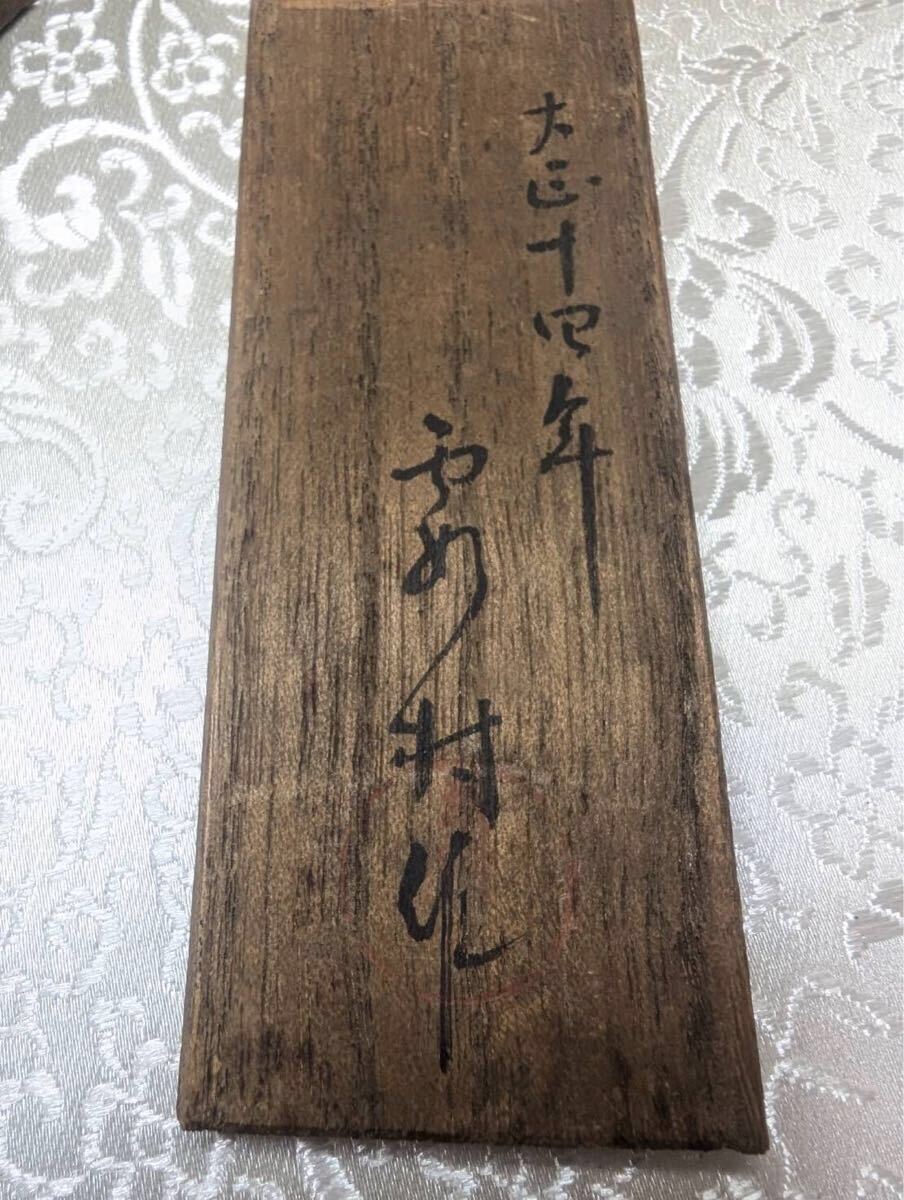 大正十四年
村作